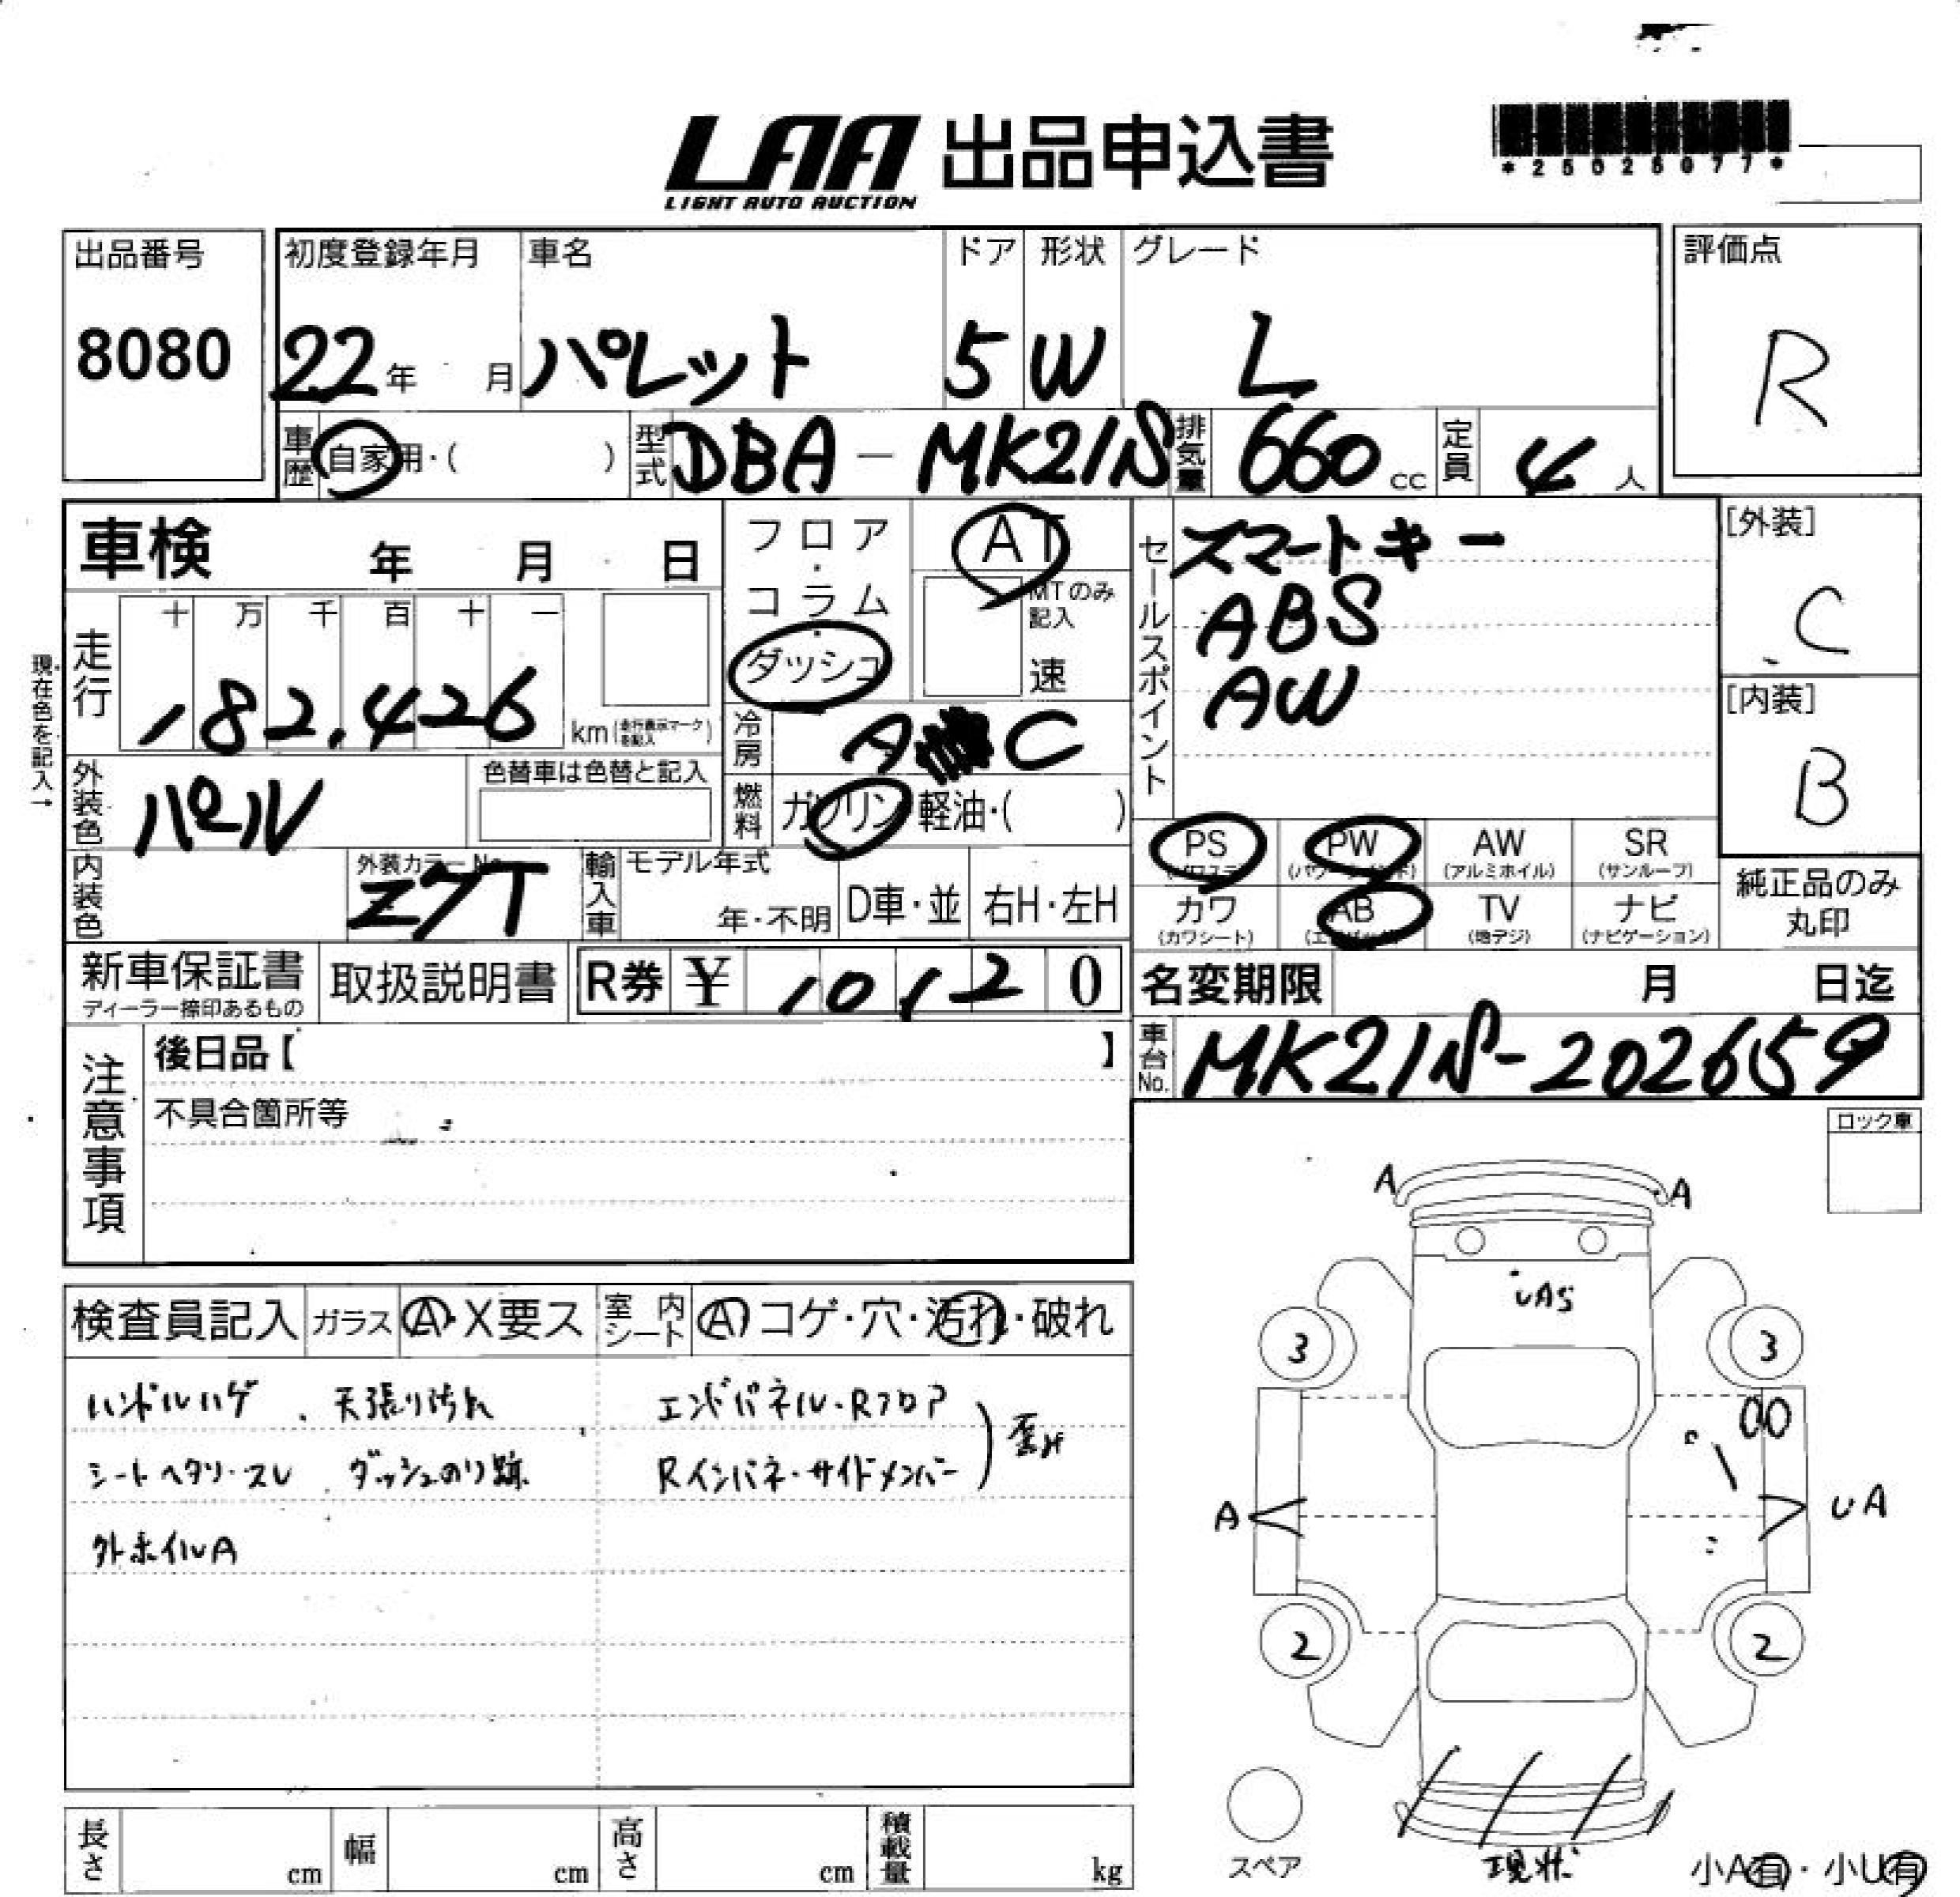 LAA 出品申込書
LIGHT AUTO AUCTION
*25026077*
出品番号
8080
初度登録年月 車名 ドア 形状 グレード
22年 月 パレット 5 W L
評価点
R
車歴 自家用・( ) 型式 DBA-MK21S 排気量 660cc 定員 4人
車検 年 月 日
フロア・コラム・ダッシュ
AT
MTのみ記入
速
セールスポイント
スマートキー
ABS
AW
[外装]
C
[内装]
B
現在色を記入→
走行 十 万 千 百 十 一
182,426 km(走行表示マークを記入)
冷房 A C
燃料 ガソリン・軽油・( )
外装色 パール
色替車は色替と記入
内装色
外装カラーNo.
Z7T
輸入車 モデル年式
年・不明 D車・並 右H・左H
PS (パワステ) PW (パワーウインド) AW (アルミホイル) SR (サンルーフ)
カワ (カワシート) AB (エアバッグ) TV (地デジ) ナビ (ナビゲーション)
純正品のみ
丸印
新車保証書
ディーラー捺印あるもの
取扱説明書
R券 ¥ 10120
名変期限 月 日迄
車台No. MK21S-202659
注意事項
後日品【 】
不具合箇所等
ロック車
検査員記入 ガラス A・X要ス 室内シート A コゲ・穴・汚れ・破れ
ハンドルハゲ 天張り汚れ エンドパネル・Rフロア
シートヘタリ・スレ ダッシュのり跡 Rインパネ・サイドメンバー ) 歪み
外ホイルA
A A
UAS
3 3
A UA
2 2
スペア
現状
小A有・小U有
長さ cm 幅 cm 高さ cm 積載量 kg